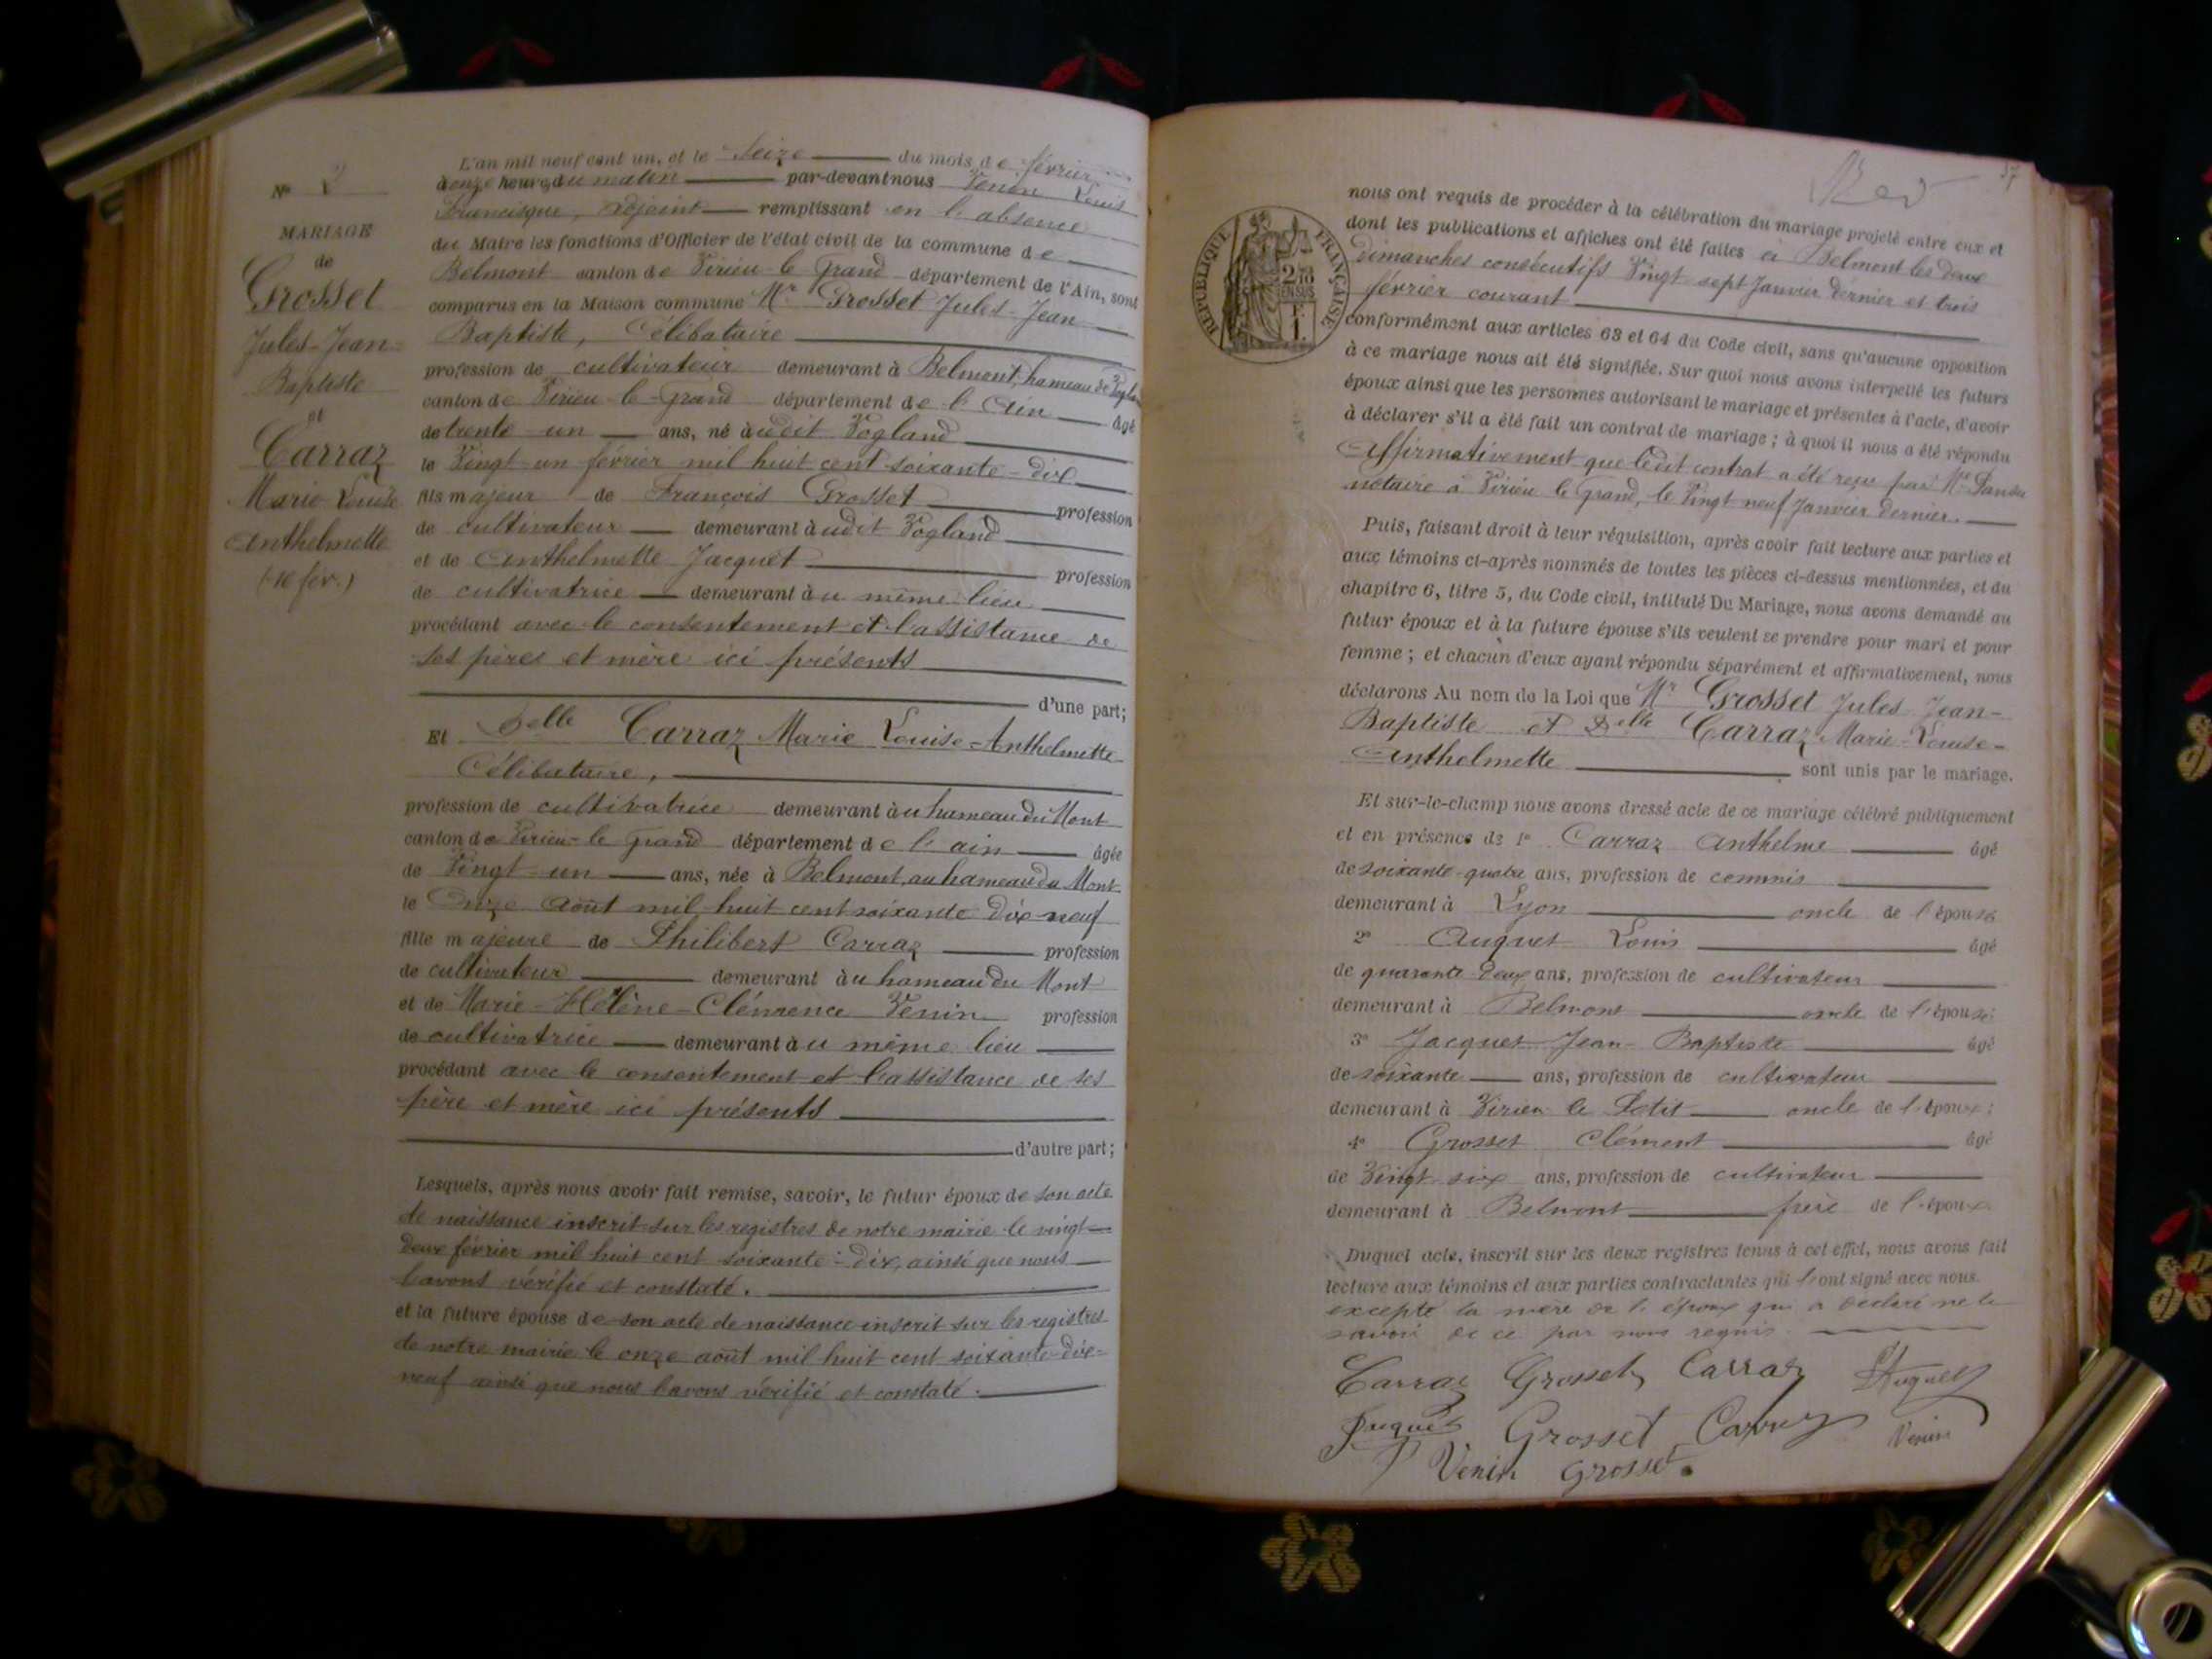 L'an mil neuf cent un, et le seize du mois de février
à onze heures du matin par-devant nous Venin Louis
Francisque, adjoint remplissant en l'absence
du Maire les fonctions d'Officier de l'état civil de la commune de
Belmont canton de Virieu-le-Grand département de l'Ain, sont
comparus en la Maison commune Mr Grosset Jules-Jean
Baptiste, Célibataire
profession de cultivateur demeurant à Belmont, hameau de Vogland
canton de Virieu-le-Grand département de l'Ain âgé
de trente un ans, né audit Vogland
le Vingt un février mil huit cent soixante-dix
fils majeur de François Grosset profession
de cultivateur demeurant audit Vogland
et de Anthelmette Jacquet profession
de cultivatrice demeurant au même lieu
procédant avec le consentement et l'assistance de
ses père et mère ici présents
d'une part;
Et Delle Carraz Marie Louise-Anthelmette
Célibataire,
profession de cultivatrice demeurant au hameau du Mont
canton de Virieu-le-Grand département de l'ain âgée
de Vingt-un ans, née à Belmont, au hameau du Mont
le Onze Août mil huit cent soixante dix-neuf
fille majeure de Philibert Carraz profession
de cultivateur demeurant au hameau du Mont
et de Marie-Hélène-Clémence Venin profession
de cultivatrice demeurant au même lieu
procédant avec le consentement et l'assistance de ses
père et mère ici présents
d'autre part;
Lesquels, après nous avoir fait remise, savoir, le futur époux de son acte
de naissance inscrit sur les registres de notre mairie le vingt
deux février mil huit cent soixante-dix, ainsi que nous
l'avons vérifié et constaté.
et la future épouse de son acte de naissance inscrit sur les registres
de notre mairie le onze août mil huit cent soixante-dix-
neuf ainsi que nous l'avons vérifié et constaté.
No
MARIAGE
de
Grosset
Jules-Jean-
Baptiste
et
Carraz
Marie Louise
Anthelmette
(16 fév.)
37
RÉPUBLIQUE FRANÇAISE
2/10 EN SUS
1 F.
nous ont requis de procéder à la célébration du mariage projeté entre eux et
dont les publications et affiches ont été faites à Belmont les deux
dimanches consécutifs Vingt-sept Janvier dernier et trois
février courant
conformément aux articles 63 et 64 du Code civil, sans qu'aucune opposition
à ce mariage nous ait été signifiée. Sur quoi nous avons interpellé les futurs
époux ainsi que les personnes autorisant le mariage et présentes à l'acte, d'avoir
à déclarer s'il a été fait un contrat de mariage; à quoi il nous a été répondu
Affirmativement que ledit contrat a été reçu par Me
notaire à Virieu le Grand, le Vingt neuf Janvier dernier.
Puis, faisant droit à leur réquisition, après avoir fait lecture aux parties et
aux témoins ci-après nommés de toutes les pièces ci-dessus mentionnées, et du
chapitre 6, titre 5, du Code civil, intitulé Du Mariage, nous avons demandé au
futur époux et à la future épouse s'ils veulent se prendre pour mari et pour
femme; et chacun d'eux ayant répondu séparément et affirmativement, nous
déclarons Au nom de la Loi que Mr Grosset Jules Jean-
Baptiste et Delle Carraz Marie-Louise-
Anthelmette sont unis par le mariage.
Et sur-le-champ nous avons dressé acte de ce mariage célébré publiquement
et en présence de 1º Carraz Anthelme âgé
de soixante-quatre ans, profession de commis
demeurant à Lyon oncle de l'épouse
2º Auguet Louis âgé
de quarante-deux ans, profession de cultivateur
demeurant à Belmont oncle de l'épouse
3º Jacquet Jean-Baptiste âgé
de soixante ans, profession de cultivateur
demeurant à Virieu le Petit oncle de l'époux;
4º Grosset Clément âgé
de Vingt six ans, profession de cultivateur
demeurant à Belmont frère de l'époux
Duquel acte, inscrit sur les deux registres tenus à cet effet, nous avons fait
lecture aux témoins et aux parties contractantes qui l'ont signé avec nous.
excepté la mère de l'époux qui a déclaré ne le
savoir de ce par nous requis.
Carraz Grosset Carraz Auguet
Jacquet Grosset Carraz Venin
Venin Grosset